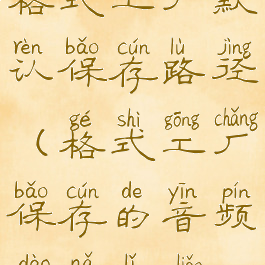 格式工厂默
rèn bǎo cún lù jìng
认保存路径
gé shì gōng chǎng
（格式工厂
bǎo cún de yīn pín
保存的音频
dào nǎ lǐ